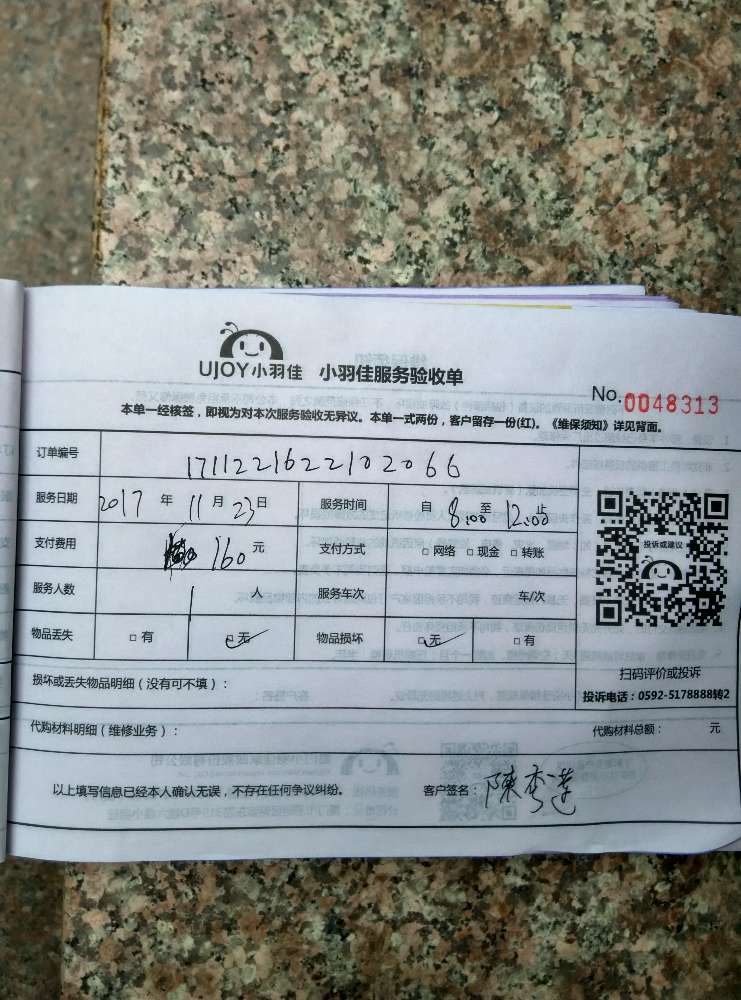 UJOY小羽佳 小羽佳服务验收单
No.0048313
本单一经核签，即视为对本次服务验收无异议。本单一式两份，客户留存一份(红)。《维保须知》详见背面。
订单编号 1711221622102066
服务日期 2017 年 11 月 23 日 服务时间 自 8:00 至 12:00 止
支付费用 160 元 支付方式 □网络 □现金 □转账
服务人数 1 人 服务车次 车/次
物品丢失 □有 □无 物品损坏 □无 □有
投诉或建议
扫码评价或投诉
投诉电话：0592-5178888转2
损坏或丢失物品明细（没有可不填）：
代购材料明细（维修业务）： 代购材料总额： 元
以上填写信息已经本人确认无误，不存在任何争议纠纷。 客户签名：陳秀蓮